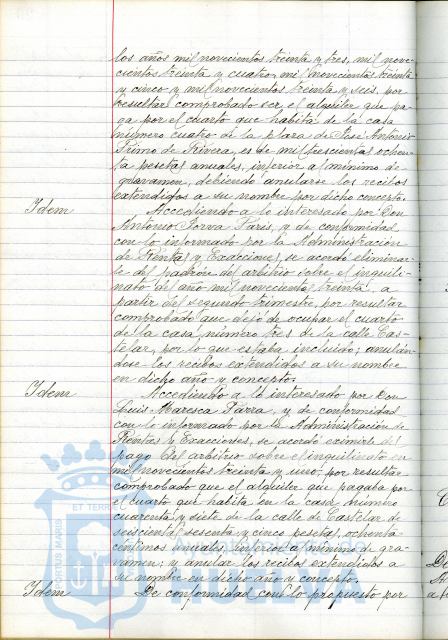 los años mil novecientos treinta y tres, mil nove-
cientos treinta y cuatro, mil novecientos treinta
y cinco y mil novecientos treinta y seis, por
resultar comprobado ser el alquiler que pa-
ga por el cuarto que habita de la casa
número cuatro de la plaza de José Antonio
Primo de Rivera, es de mil trescientas ochen-
ta pesetas anuales, inferior al mínimo de
gravamen, debiendo anularse los recibos
extendidos a su nombre por dicho concepto.
Idem Accediendo a lo interesado por Don
Antonio Jorva Paris, y de conformidad
con lo informado por la Administración
de Rentas y Exacciones, se acordó eliminar-
le del padrón del arbitrio sobre el inquili-
nato del año mil novecientos treinta, a
partir del segundo trimestre, por resultar
comprobado que dejó de ocupar el cuarto
de la casa número tres de la calle Cas-
telar, por lo que estaba incluido; anulán-
dose los recibos extendidos a su nombre
en dicho año y concepto.
Idem Accediendo a lo interesado por Don
Luis Maresca Parra, y de conformidad
con lo informado por la Administración de
Rentas y Exacciones, se acordó eximirle del
pago del arbitrio sobre el inquilinato en
mil novecientos treinta y uno, por resultar
comprobado que el alquiler que pagaba por
el cuarto que habita en la casa número
cuarenta y siete de la calle de Castelar de
seiscientas sesenta y cinco pesetas, ochenta
céntimos anuales, inferior a mínimo de gra-
vamen; y anular los recibos extendidos a
su nombre en dicho año y concepto.
Idem De conformidad con lo propuesto por
ET TERRE
PORTUS MARIS
HUELVA